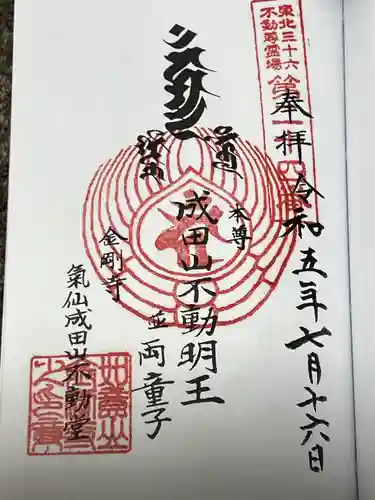 東北三十六
不動尊霊場
奉拝 令和五年七月十六日
本尊
成田山不動明王
並両童子
金剛寺
氣仙成田山不動堂